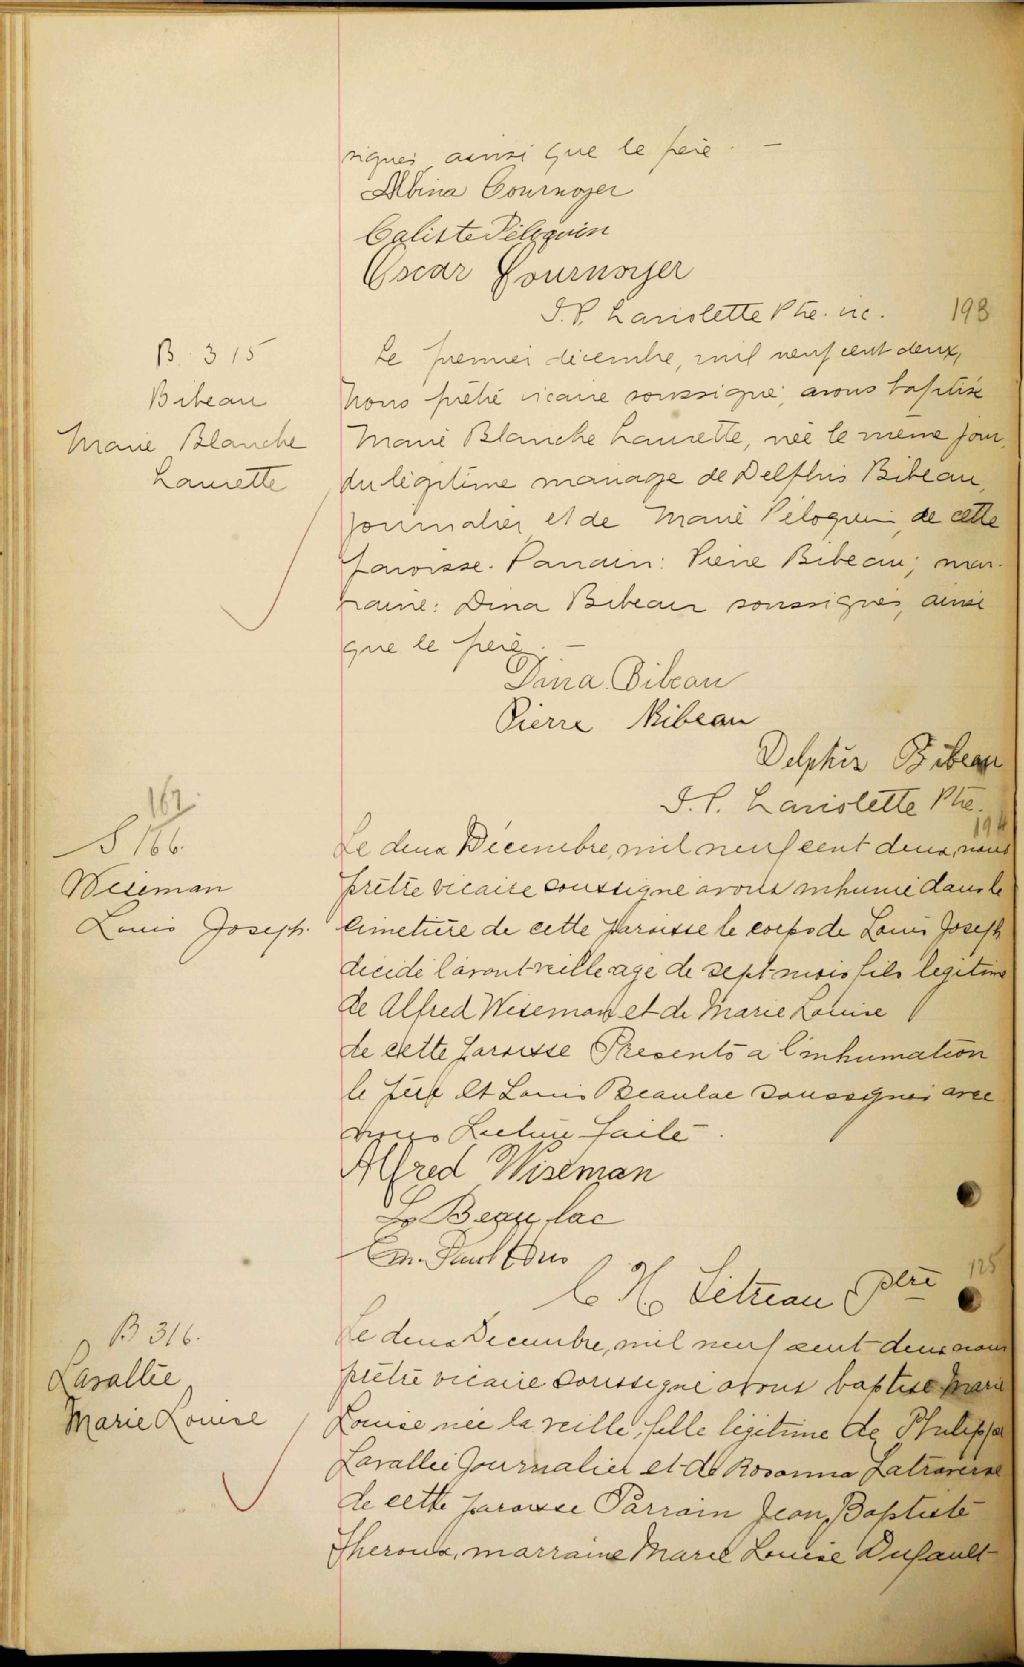 signés, ainsi que le père. —
Albina Cournoyer
Caliste Péloquin
Oscar Cournoyer
J.P. Lariolette Ptre. vic.
193
B. 315
Bibeau
Marie Blanche
Laurette
Le premier décembre, mil neuf cent deux,
Nous prêtre vicaire soussigné, avons baptisé
Marie Blanche Laurette, née le même jour,
du légitime mariage de Delphis Bibeau,
journalier, et de Marie Péloquin de cette
paroisse. Parrain: Pierre Bibeau; mar-
raine: Dina Bibeau soussignés, ainsi
que le père. —
Dina Bibeau
Pierre Bibeau
Delphis Bibeau
J.P. Lariolette Ptre.
194
167.
S 166.
Wiseman
Louis Joseph.
Le deux Décembre, mil neuf cent deux, nous
prêtre vicaire soussigné avons inhumé dans le
cimetière de cette paroisse le corps de Louis Joseph
décédé l'avant-veille agé de sept mois fils légitime
de Alfred Wiseman et de Marie Louise
de cette paroisse Presents à l'inhumation
le père et Louis Beaulac soussignés avec
nous Lecture faite.
Alfred Wiseman
L Beaulac
Em. Paul Hus
C H Létreau Ptre
125
B 316.
Lavallée
Marie Louise
Le deux Décembre, mil neuf cent deux nous
prêtre vicaire soussigné avons baptisé Marie
Louise née la veille, fille légitime de Philippe
Lavallée Journalier et de Rosanna Latraverse
de cette paroisse Parrain Jean Baptiste
Theroux, marraine Marie Louise Dufault